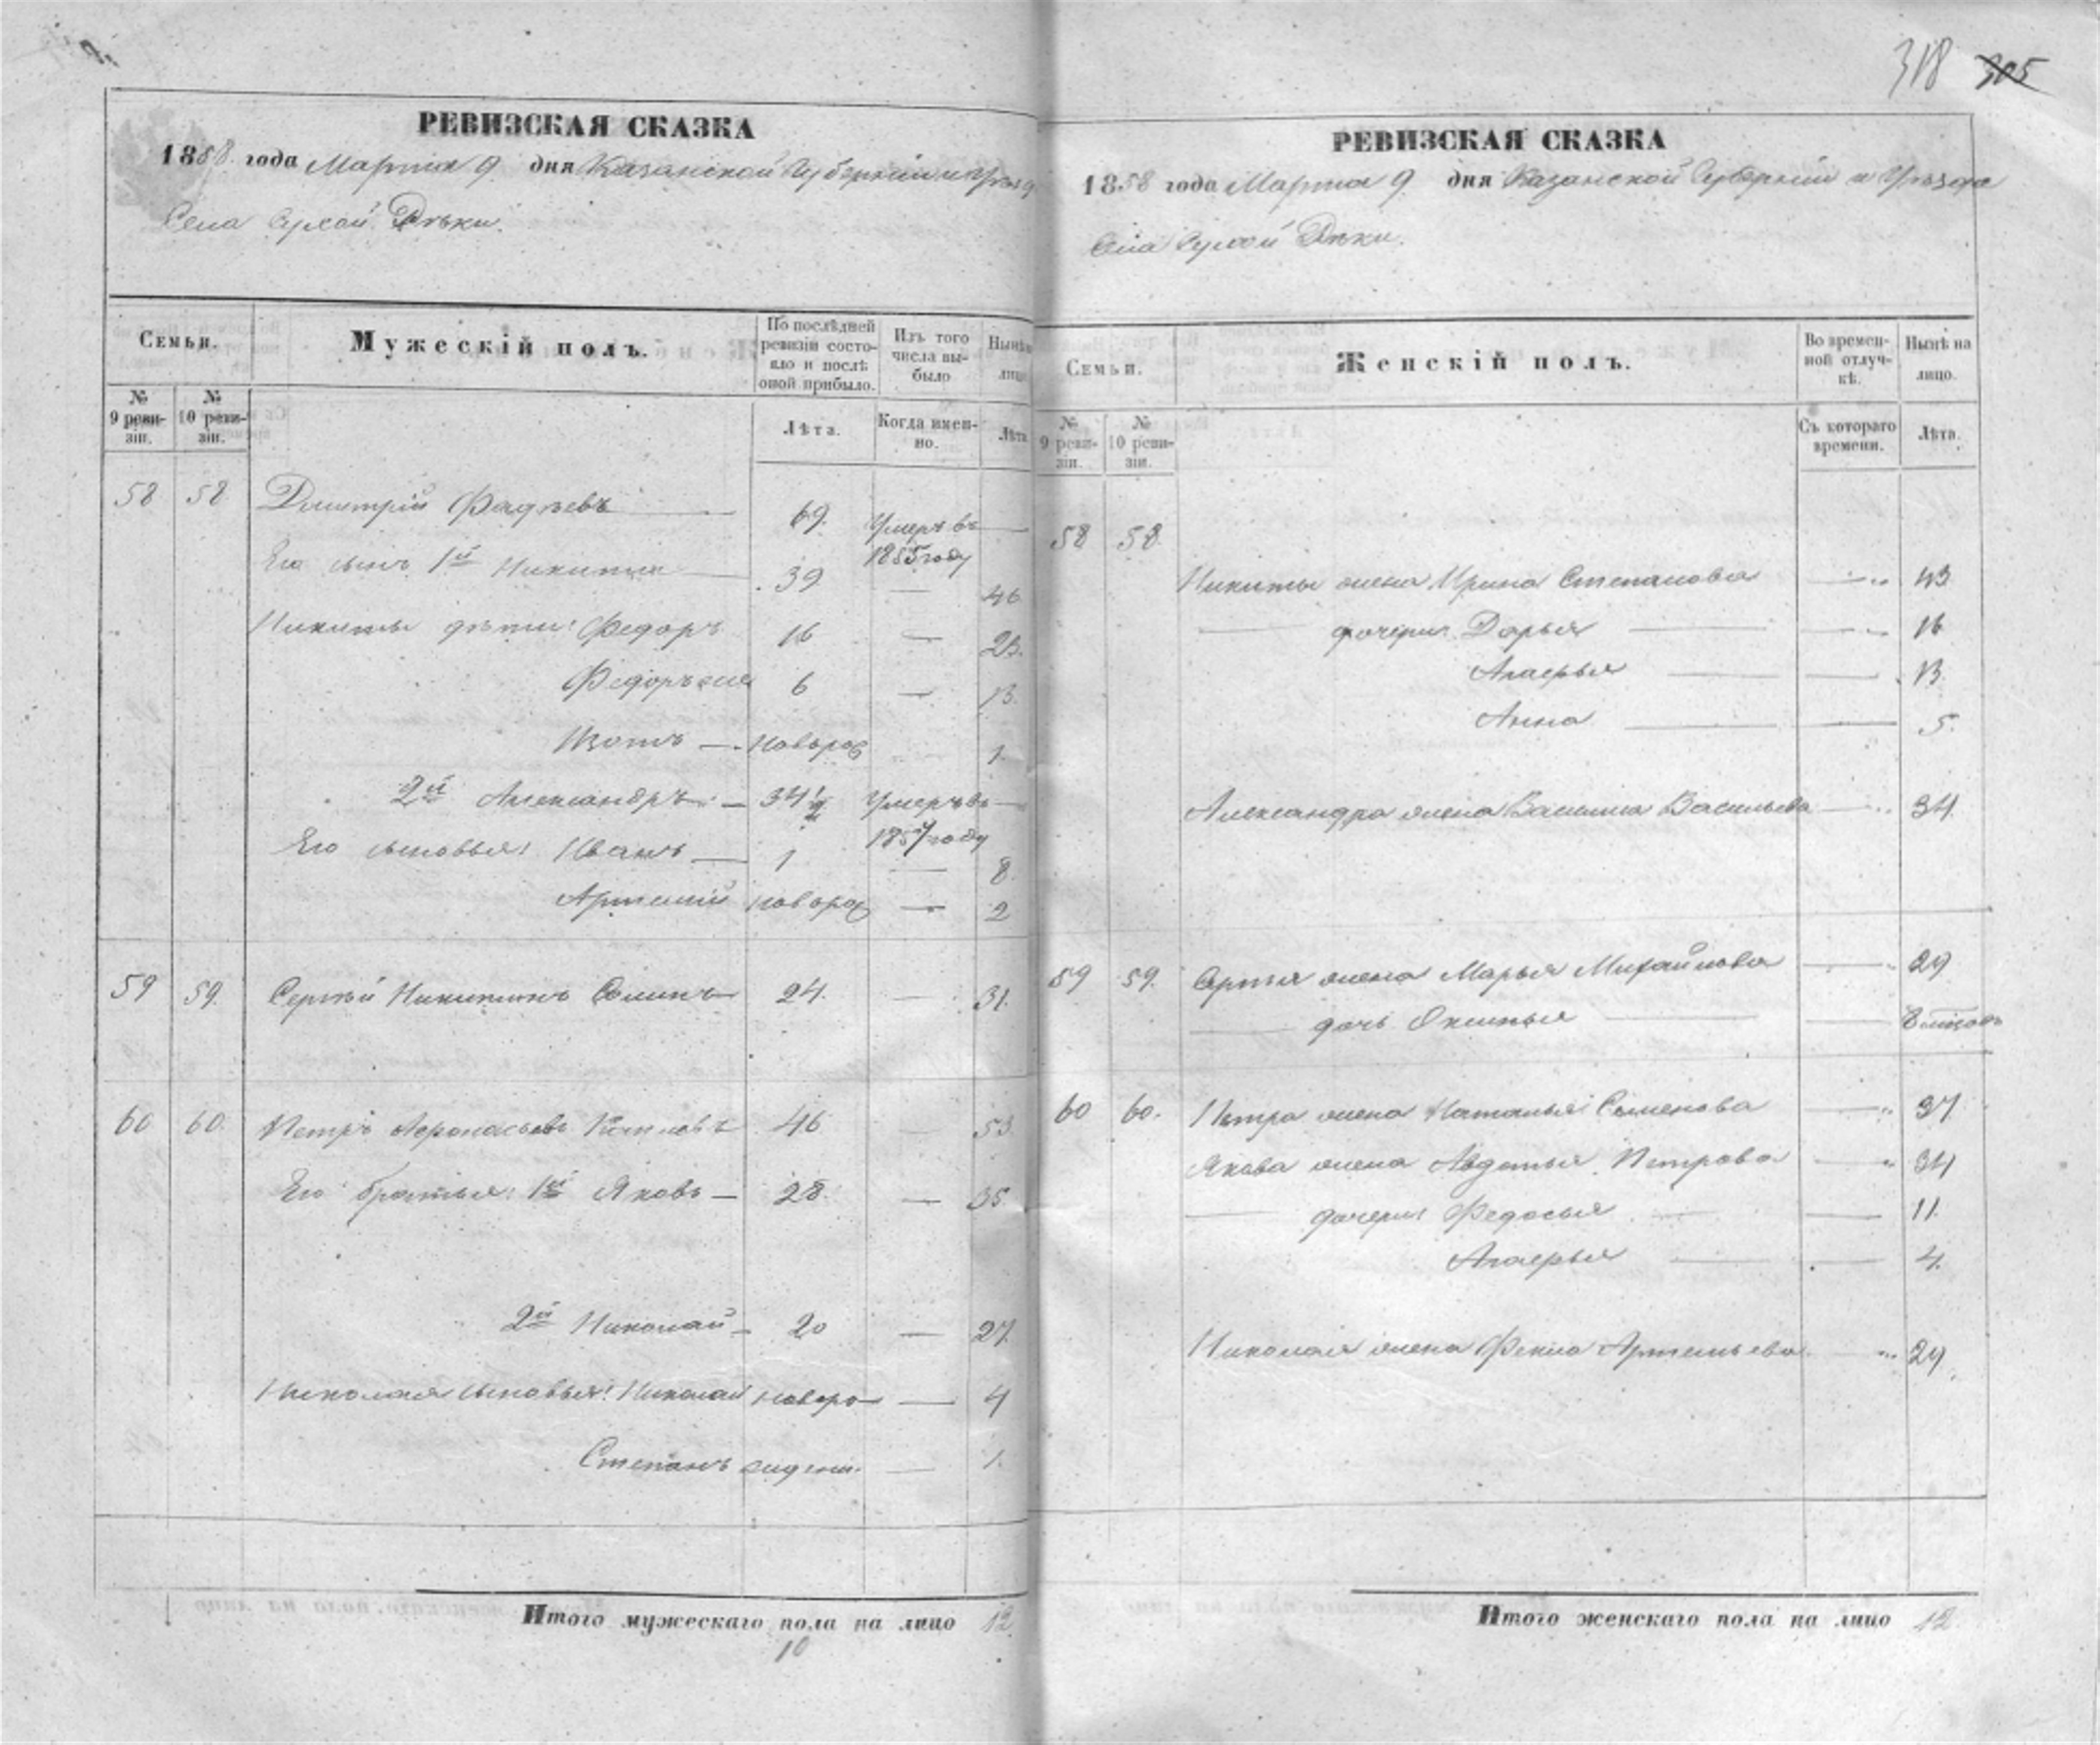 318 305
РЕВИЗСКАЯ СКАЗКА
1858 года Марта 9 дня Казанской Губерніи и Уѣзд
Села Сухой Рѣки.
Семьи.
Мужескій полъ.
По послѣдней ревизіи состояло и послѣ оной прибыло.
Изъ того числа выбыло
Нынѣ лицо
№ 9 ревизіи.
№ 10 ревизіи.
Лѣта.
Когда именно.
Лѣта
58 58 Дмитрій Фадѣевъ 69. Умеръ въ 1855 году
Его сынъ 1й Никита 39 — 46
Никиты дѣти: Федоръ 16 — 23.
Федоръ же 6 — 13.
Изотъ — новорож — 1
2й Александръ — 34½ Умеръ въ 1857 году
Его сыновья: Иванъ — 1 — 8.
Артемій новорож — 2
59 59. Сергѣй Никитинъ Соминъ 24. — 31.
60 60 Петръ Афонасьевъ 46 — 53.
Его братья: 1й Яковъ — 28. — 35.
2й Николай — 20 — 27.
Николая сыновья: Николай новоро — 4
Степанъ — 1.
Итого мужескаго пола на лицо 12.
10
РЕВИЗСКАЯ СКАЗКА
1858 года Марта 9. дня Казанской Губерніи и Уѣзда
Села Сухой Рѣки.
Семьи.
Женскій полъ.
Во временной отлучкѣ.
Нынѣ на лицо.
№ 9 ревизіи.
№ 10 ревизіи.
Съ котораго времени.
Лѣта.
58 58.
Никиты жена Ирина Степанова — 43
— дочери: Дарья — 16
Агафья — 13.
Анна — 5.
Александра жена Васильева — 34.
59 59. Сергѣя жена Марья Михайлова — 29
— дочь Оксинья —
60 60. Петра жена Наталья Семенова — 37
Якова жена Авдотья Петрова — 34
— дочери: Федосья — 11.
Агафья — 4.
Николая жена Фекла Артемьева — 29.
Итого женскаго пола на лицо 12